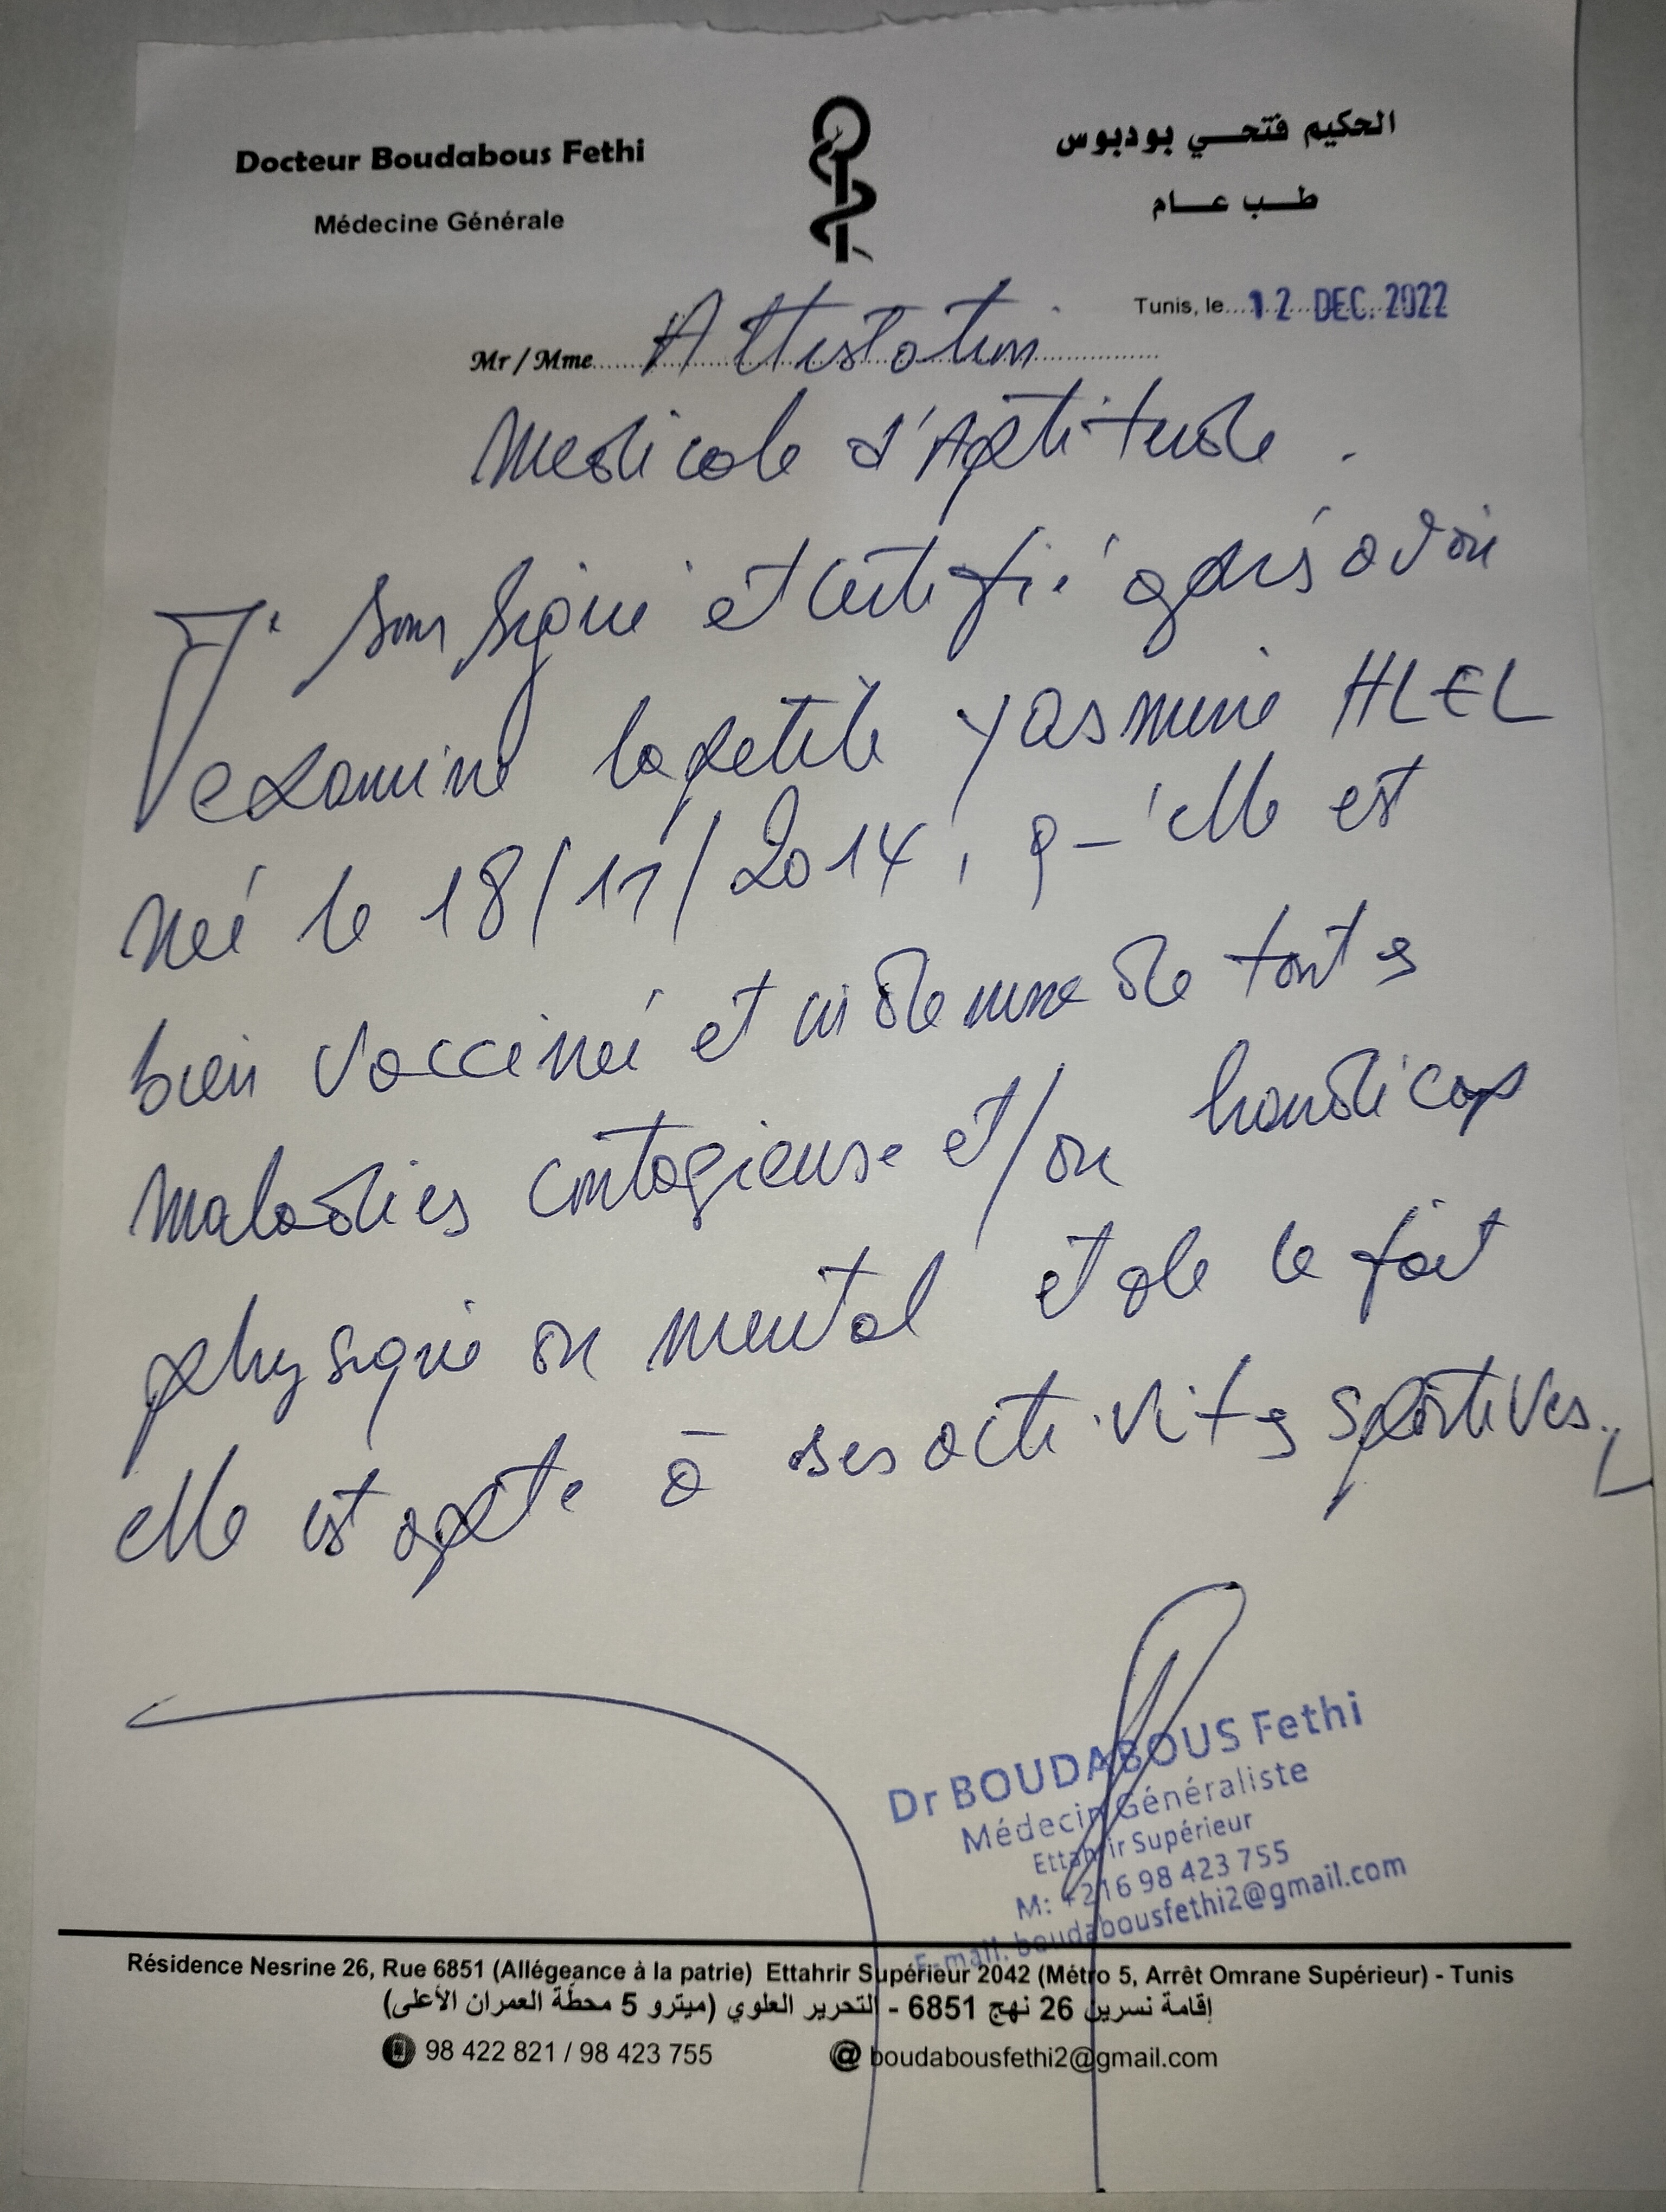 Docteur Boudabous Fethi
Médecine Générale
الحكيم فتحي بودبوس
طب عام
Tunis, le 12 DEC. 2022
Mr / Mme Attestation
Medicale d'Aptitude.
Je soussigné et certifié après avoir
examiné la petite Yasmine HLEL
née le 18/11/2014, qu'elle est
bien vaccinée et indemne de toutes
maladies contagieuse et/ou handicap
physique ou mental et de ce fait
elle est apte à ses activités sportives.
Dr BOUDABOUS Fethi
Médecin Généraliste
Ettahrir Supérieur
M: +216 98 423 755
E-mail: boudabousfethi2@gmail.com
Résidence Nesrine 26, Rue 6851 (Allégeance à la patrie) Ettahrir Supérieur 2042 (Métro 5, Arrêt Omrane Supérieur) - Tunis
إقامة نسرين 26 نهج 6851 - التحرير العلوي (ميترو 5 محطة العمران الأعلى)
98 422 821 / 98 423 755
@ boudabousfethi2@gmail.com